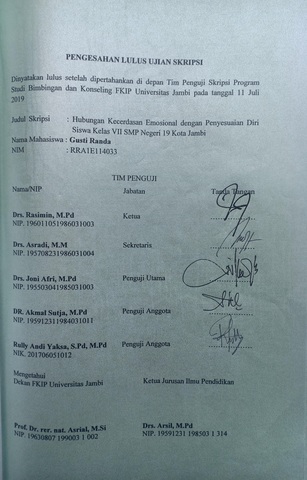 PENGESAHAN LULUS UJIAN SKRIPSI
Dinyatakan lulus setelah dipertahankan di depan Tim Penguji Skripsi Program
Studi Bimbingan dan Konseling FKIP Universitas Jambi pada tanggal 11 Juli
2019
Judul Skripsi : Hubungan Kecerdasan Emosional dengan Penyesuaian Diri
Siswa Kelas VII SMP Negeri 19 Kota Jambi
Nama Mahasiswa : Gusti Randa
NIM : RRA1E114033
TIM PENGUJI
Nama/NIP Jabatan Tanda Tangan
Drs. Rasimin, M.Pd Ketua
NIP. 196011051986031003
Drs. Asradi, M.M Sekretaris
NIP. 195708231986031004
Drs. Joni Afri, M.Pd Penguji Utama
NIP. 195503041985031003
DR. Akmal Sutja, M.Pd Penguji Anggota
NIP. 195912311984031011
Rully Andi Yaksa, S.Pd, M.Pd Penguji Anggota
NIK. 201706051012
Mengetahui
Dekan FKIP Universitas Jambi Ketua Jurusan Ilmu Pendidikan
Prof. Dr. rer. nat. Asrial, M.Si Drs. Arsil, M.Pd
NIP. 19630807 199003 1 002 NIP. 19591231 198503 1 314